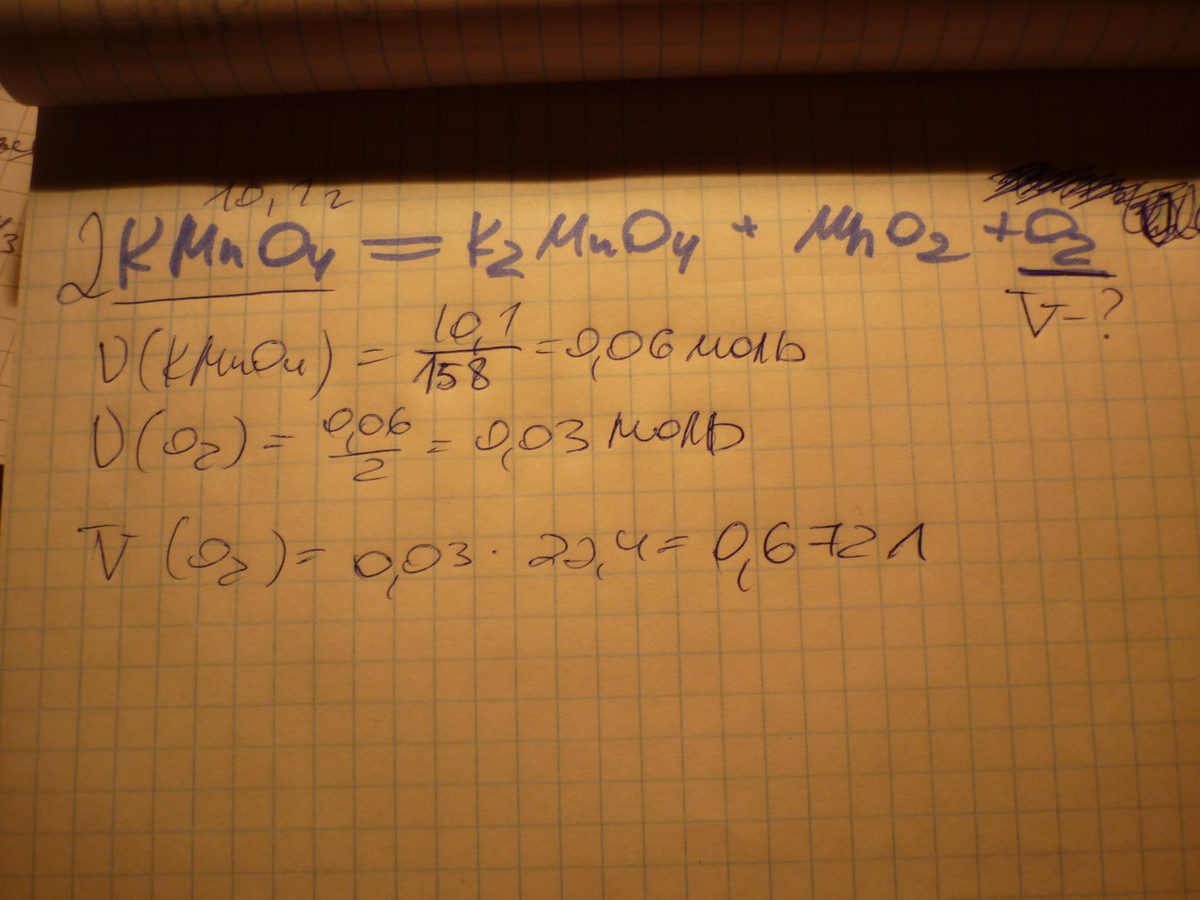 10,1 г
2KMnO4 = K2MnO4 + MnO2 + O2
V-?
υ(KMnO4) = 10,1/158 = 0,06 моль
υ(O2) = 0,06/2 = 0,03 моль
V(O2) = 0,03 · 22,4 = 0,672 л